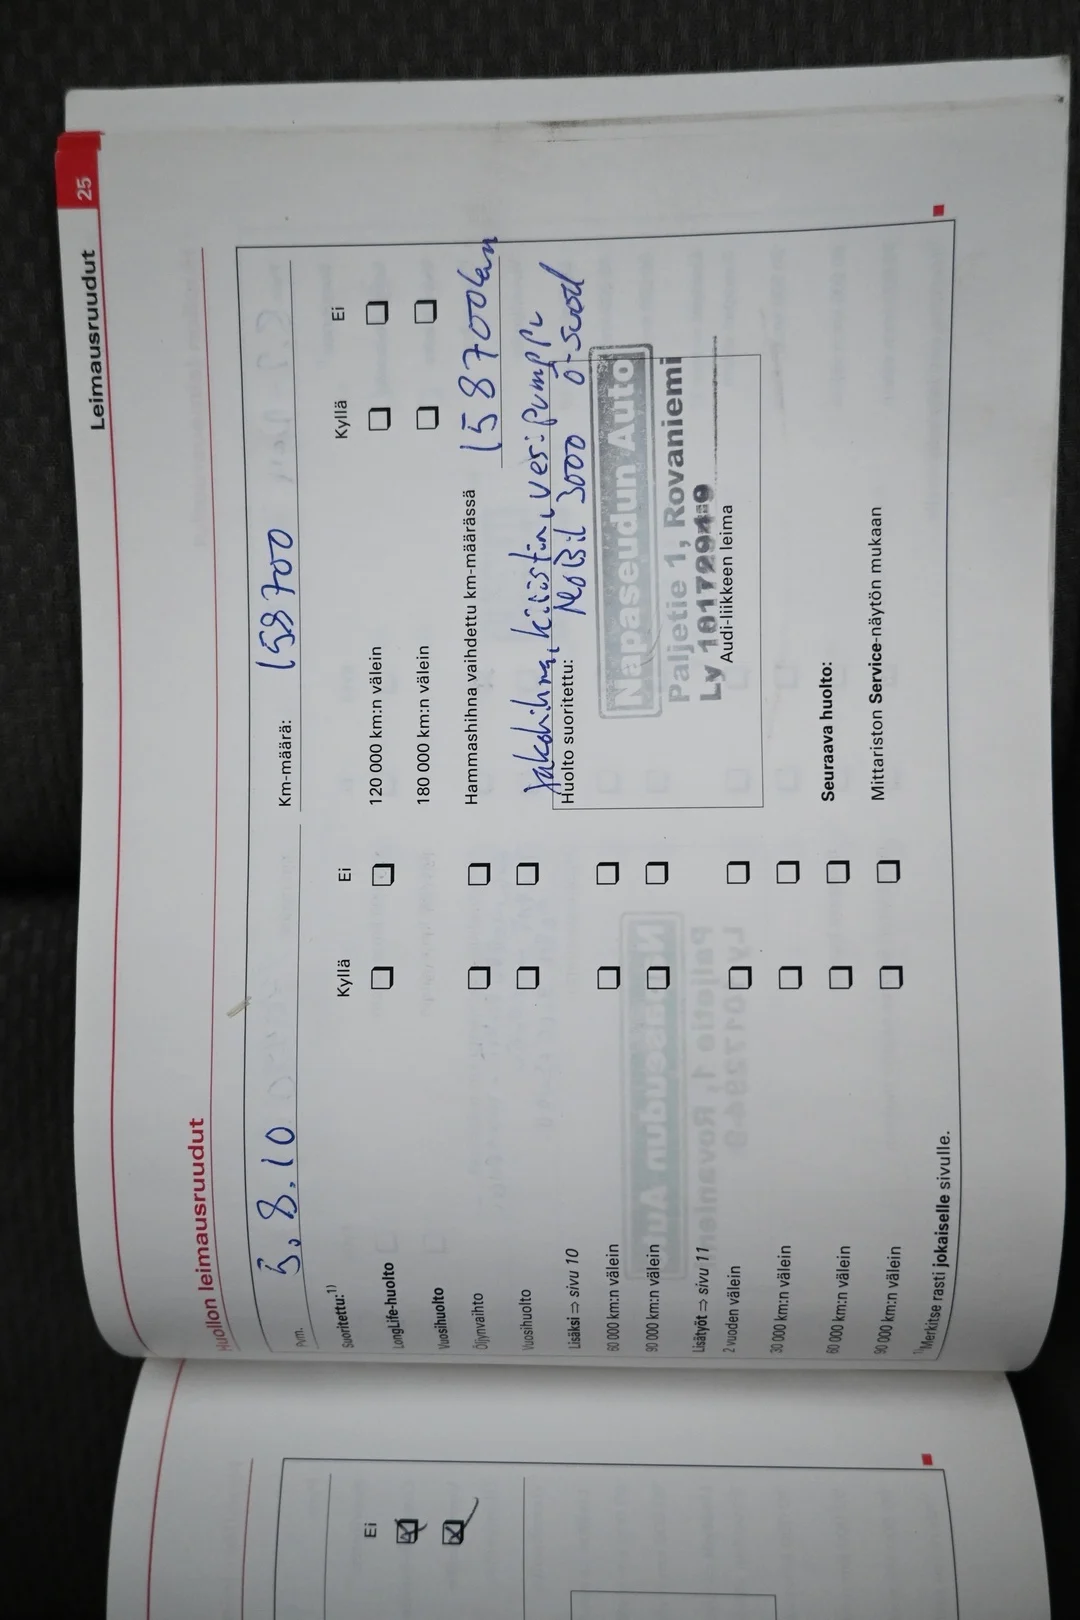 Leimausruudut 25
Huollon leimausruudut
5.8.10
Pvm.
Km-määrä: 158700
Suoritettu:1) Kyllä Ei
LongLife-huolto
Vuosihuolto
Öljynvaihto
Vuosihuolto
Lisäksi ⇒ sivu 10
60 000 km:n välein
90 000 km:n välein
Lisätyöt ⇒ sivu 11
2 vuoden välein
30 000 km:n välein
60 000 km:n välein
90 000 km:n välein
1)Merkitse rasti jokaiselle sivulle.
Kyllä Ei
120 000 km:n välein
180 000 km:n välein
Hammashihna vaihdettu km-määrässä 158700km
Jakohihna, kiristin, vesipumppu
Huolto suoritettu: MoBil 3000 ö-suod
Napaseudun Auto
Paljetie 1, Rovaniemi
Ly 1017294-9
Audi-liikkeen leima
Seuraava huolto:
Mittariston Service-näytön mukaan
Ei